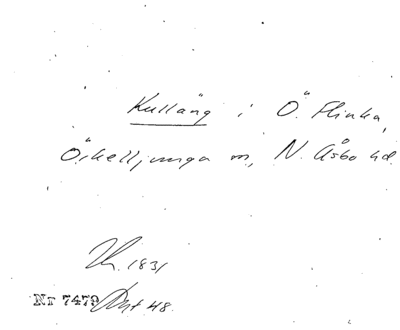 Kulläng i Ö. Flinka,
Örkelljunga sn, N. Åsbo hd.
1831
Nr 7479 48.